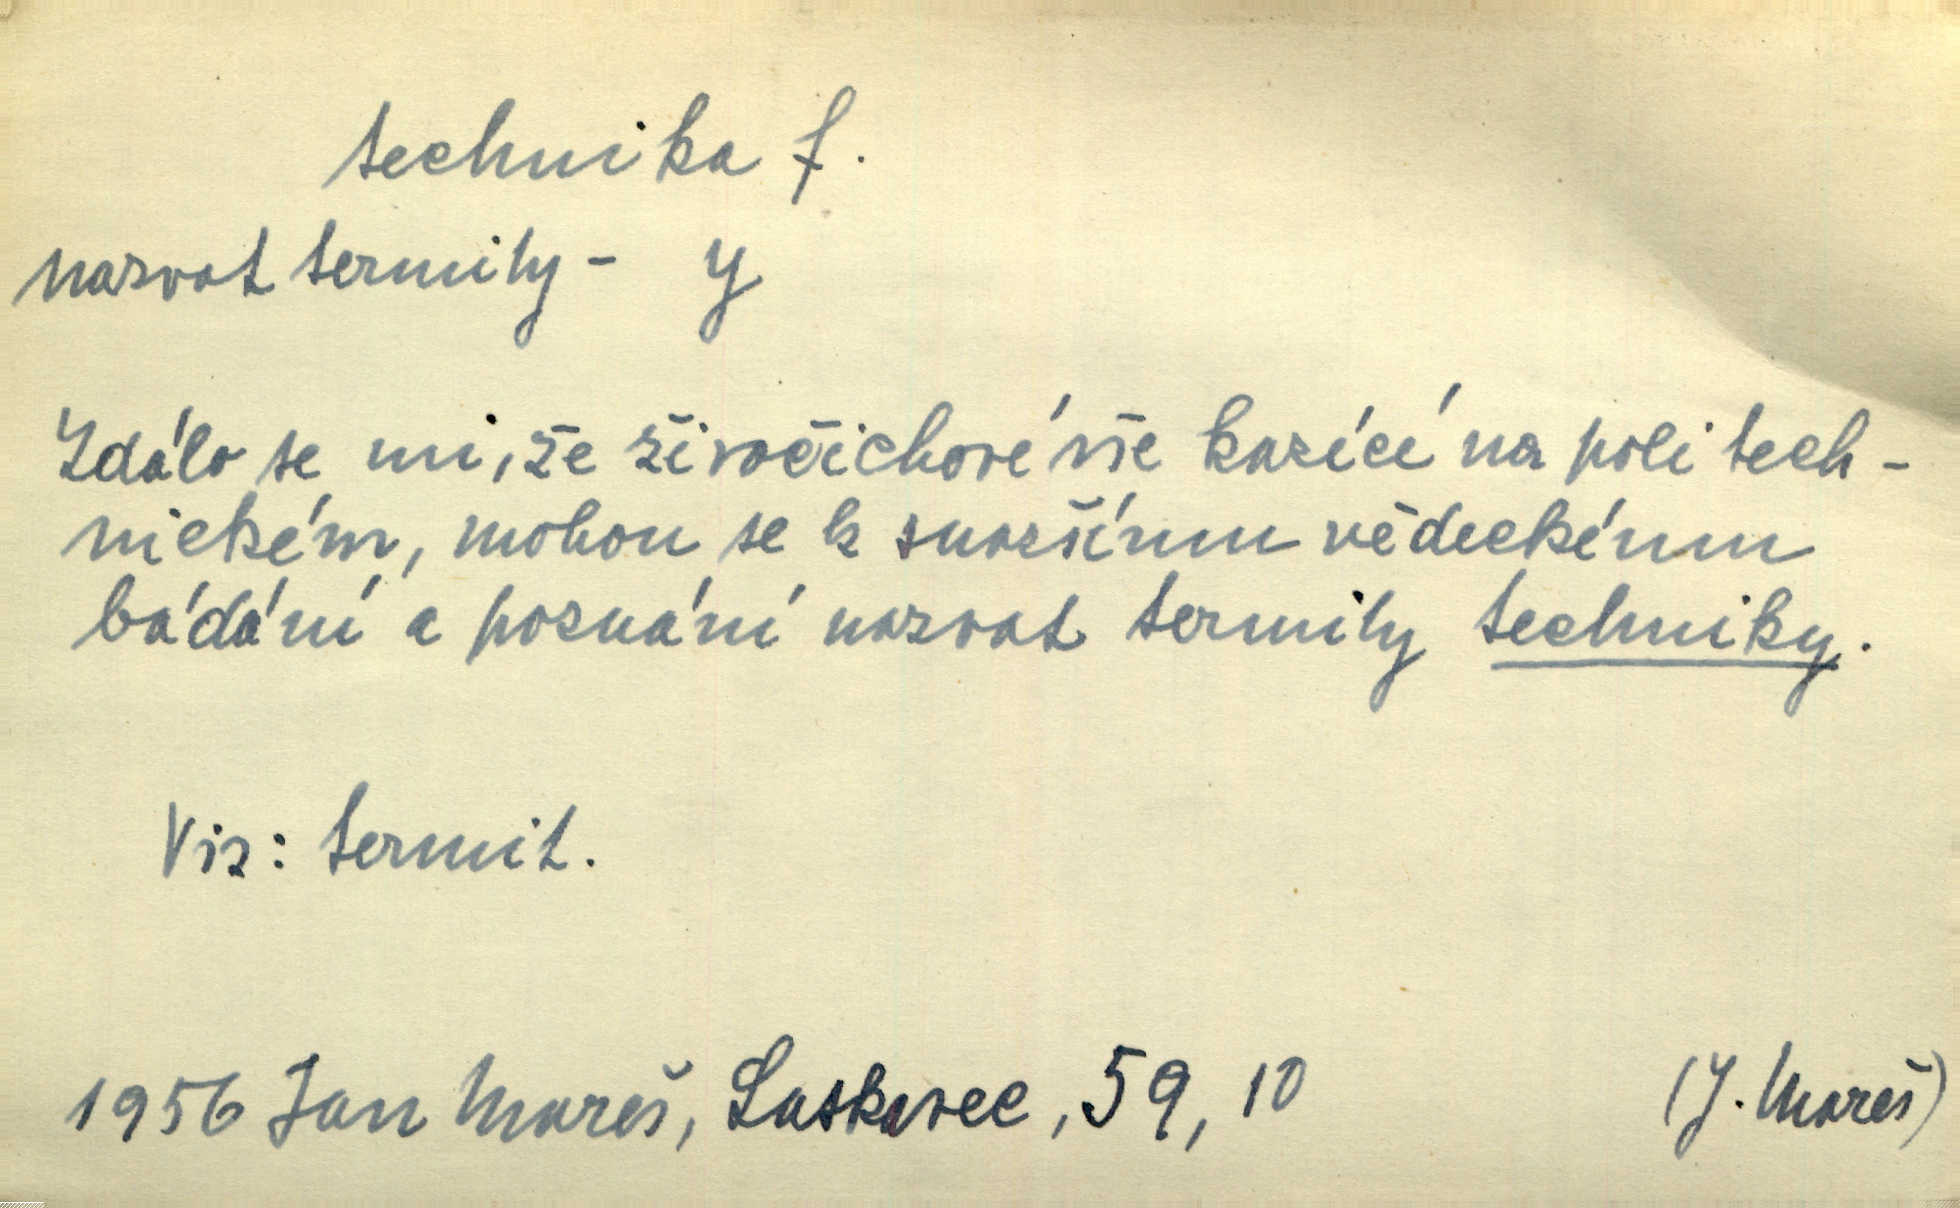 technika f.
nazvat termity - y
Zdálo se mi, že živočichové vše kazící na poli tech-
nickém, mohou se k snazšímu vědeckému
bádání a poznání nazvat termity techniky.
Viz: termit.
1956 Jan Mareš, Laskavec, 59, 10 (J. Mareš)